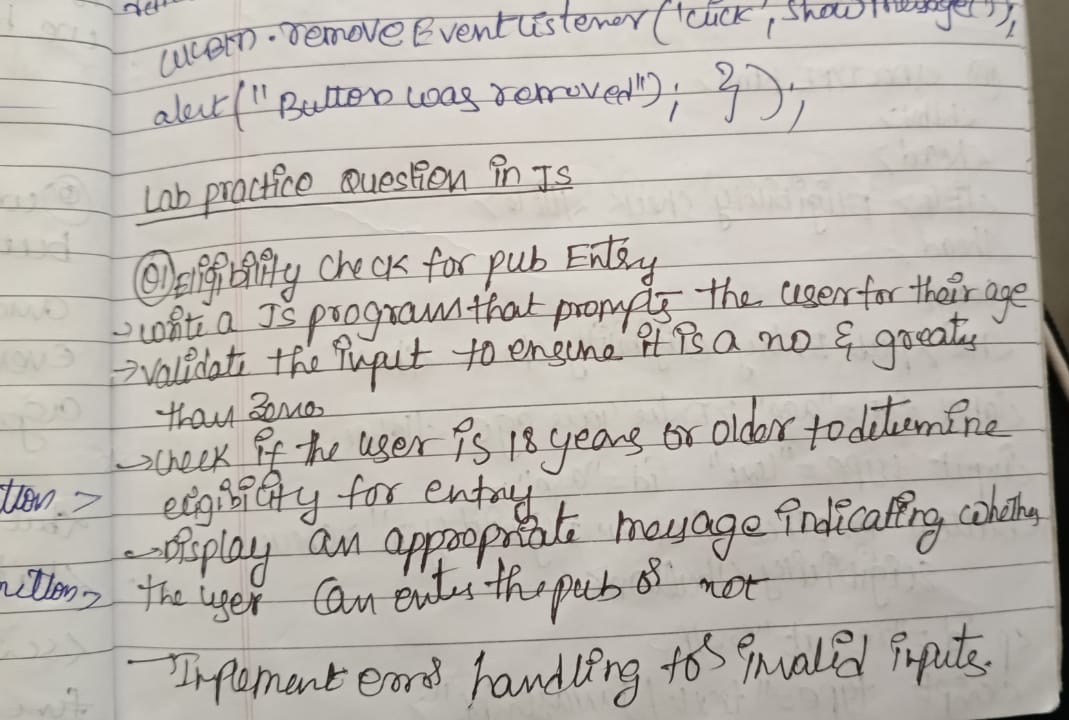 removeEventListener('click', showMessage());
alert("Button was removed"); });
Lab practice Question in JS
Q1) Eligibility check for pub Entry
→ write a JS program that prompts the user for their age
→ validate the input to ensure it is a no & greater
than zero
→ check if the user is 18 years or older to determine
tion >
eligibility for entry
→ Display an appropriate message indicating whether
the user can enter the pub or not
- Implement error handling for invalid inputs.